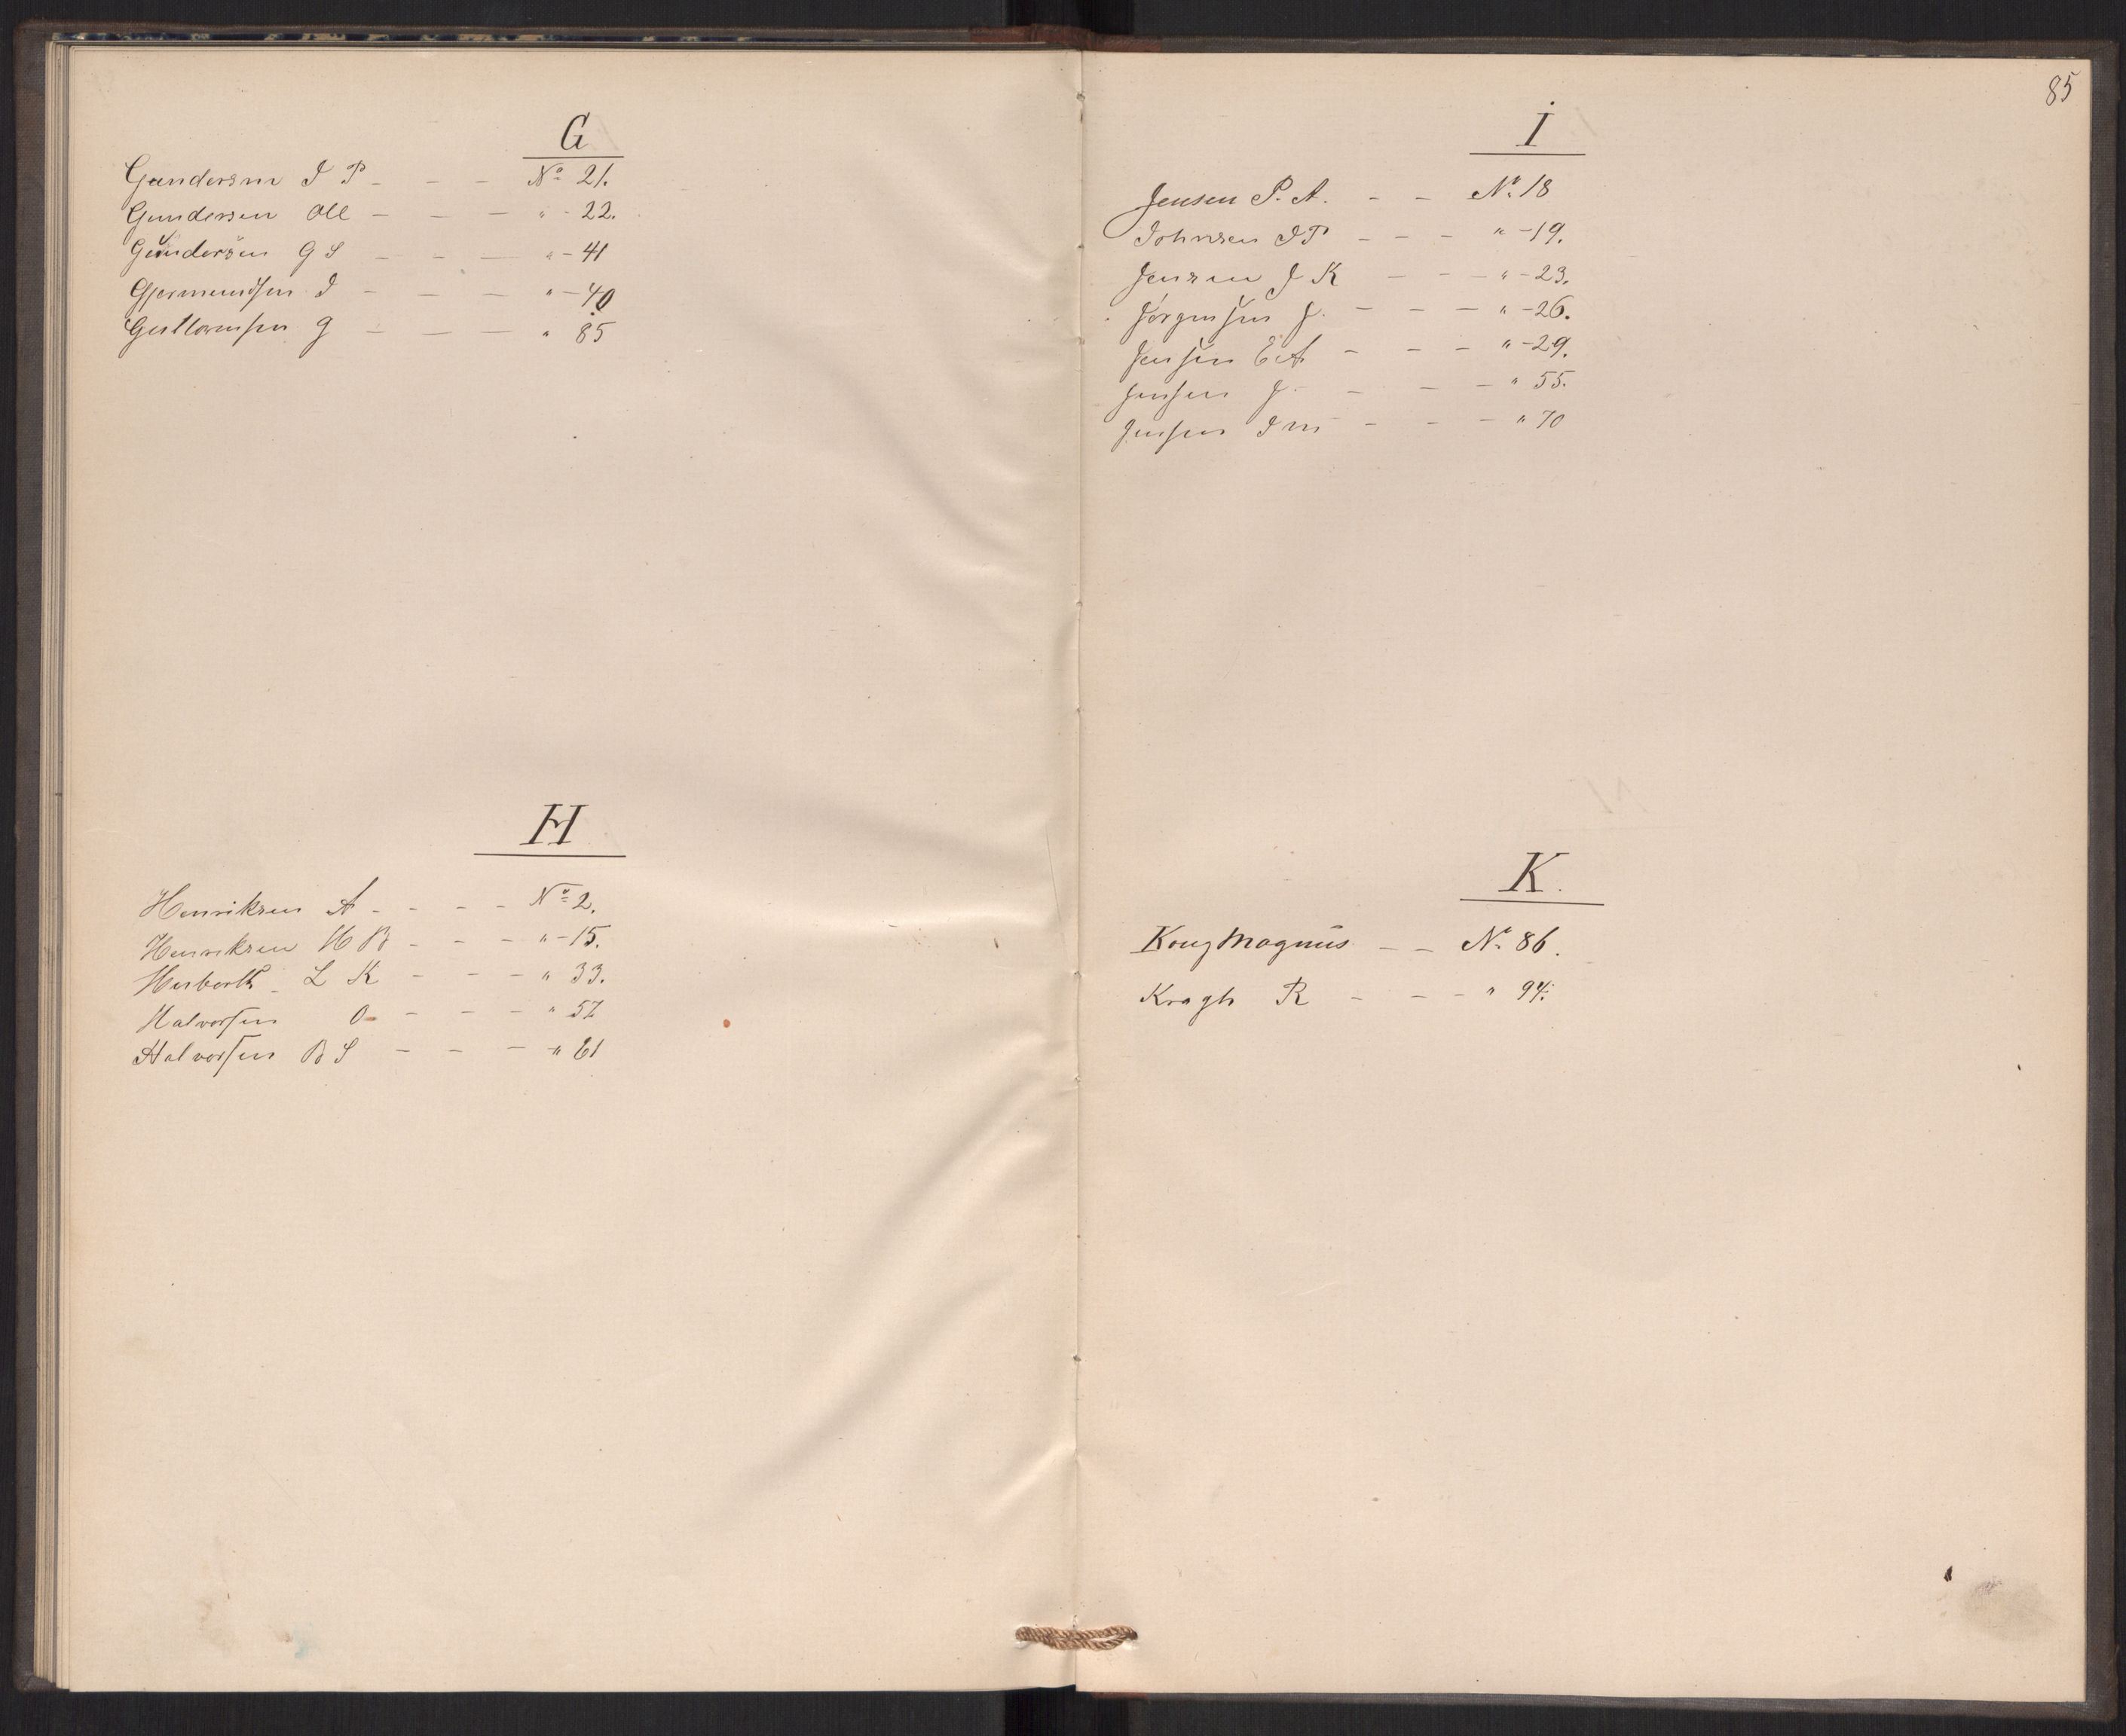 G
Gundersen I P - - - No 21.
Gundersen Ole - - - " - 22.
Gundersen G S - - - " - 41
Gjermundsen I - - - " - 40
Gullovensen G - - - " 85
H
Henriksen A - - - - No 2.
Henriksen H B - - - " - 15.
Herberth L K - - - " 33.
Halvorsen O - - - " 57
Halvorsen B S - - - " 61
85
I
Jensen P. A. - - No 18
Johnsen I P - - - " - 19.
Jensen J K - - - " - 23.
Jørgensen J. - - - " - 26.
Jensen E A - - - " - 29.
Jensen J. - - - " 55.
Jensen I M - - - " 70
K.
Kong Magnus - - No 86.
Kragh R - - - " 94.